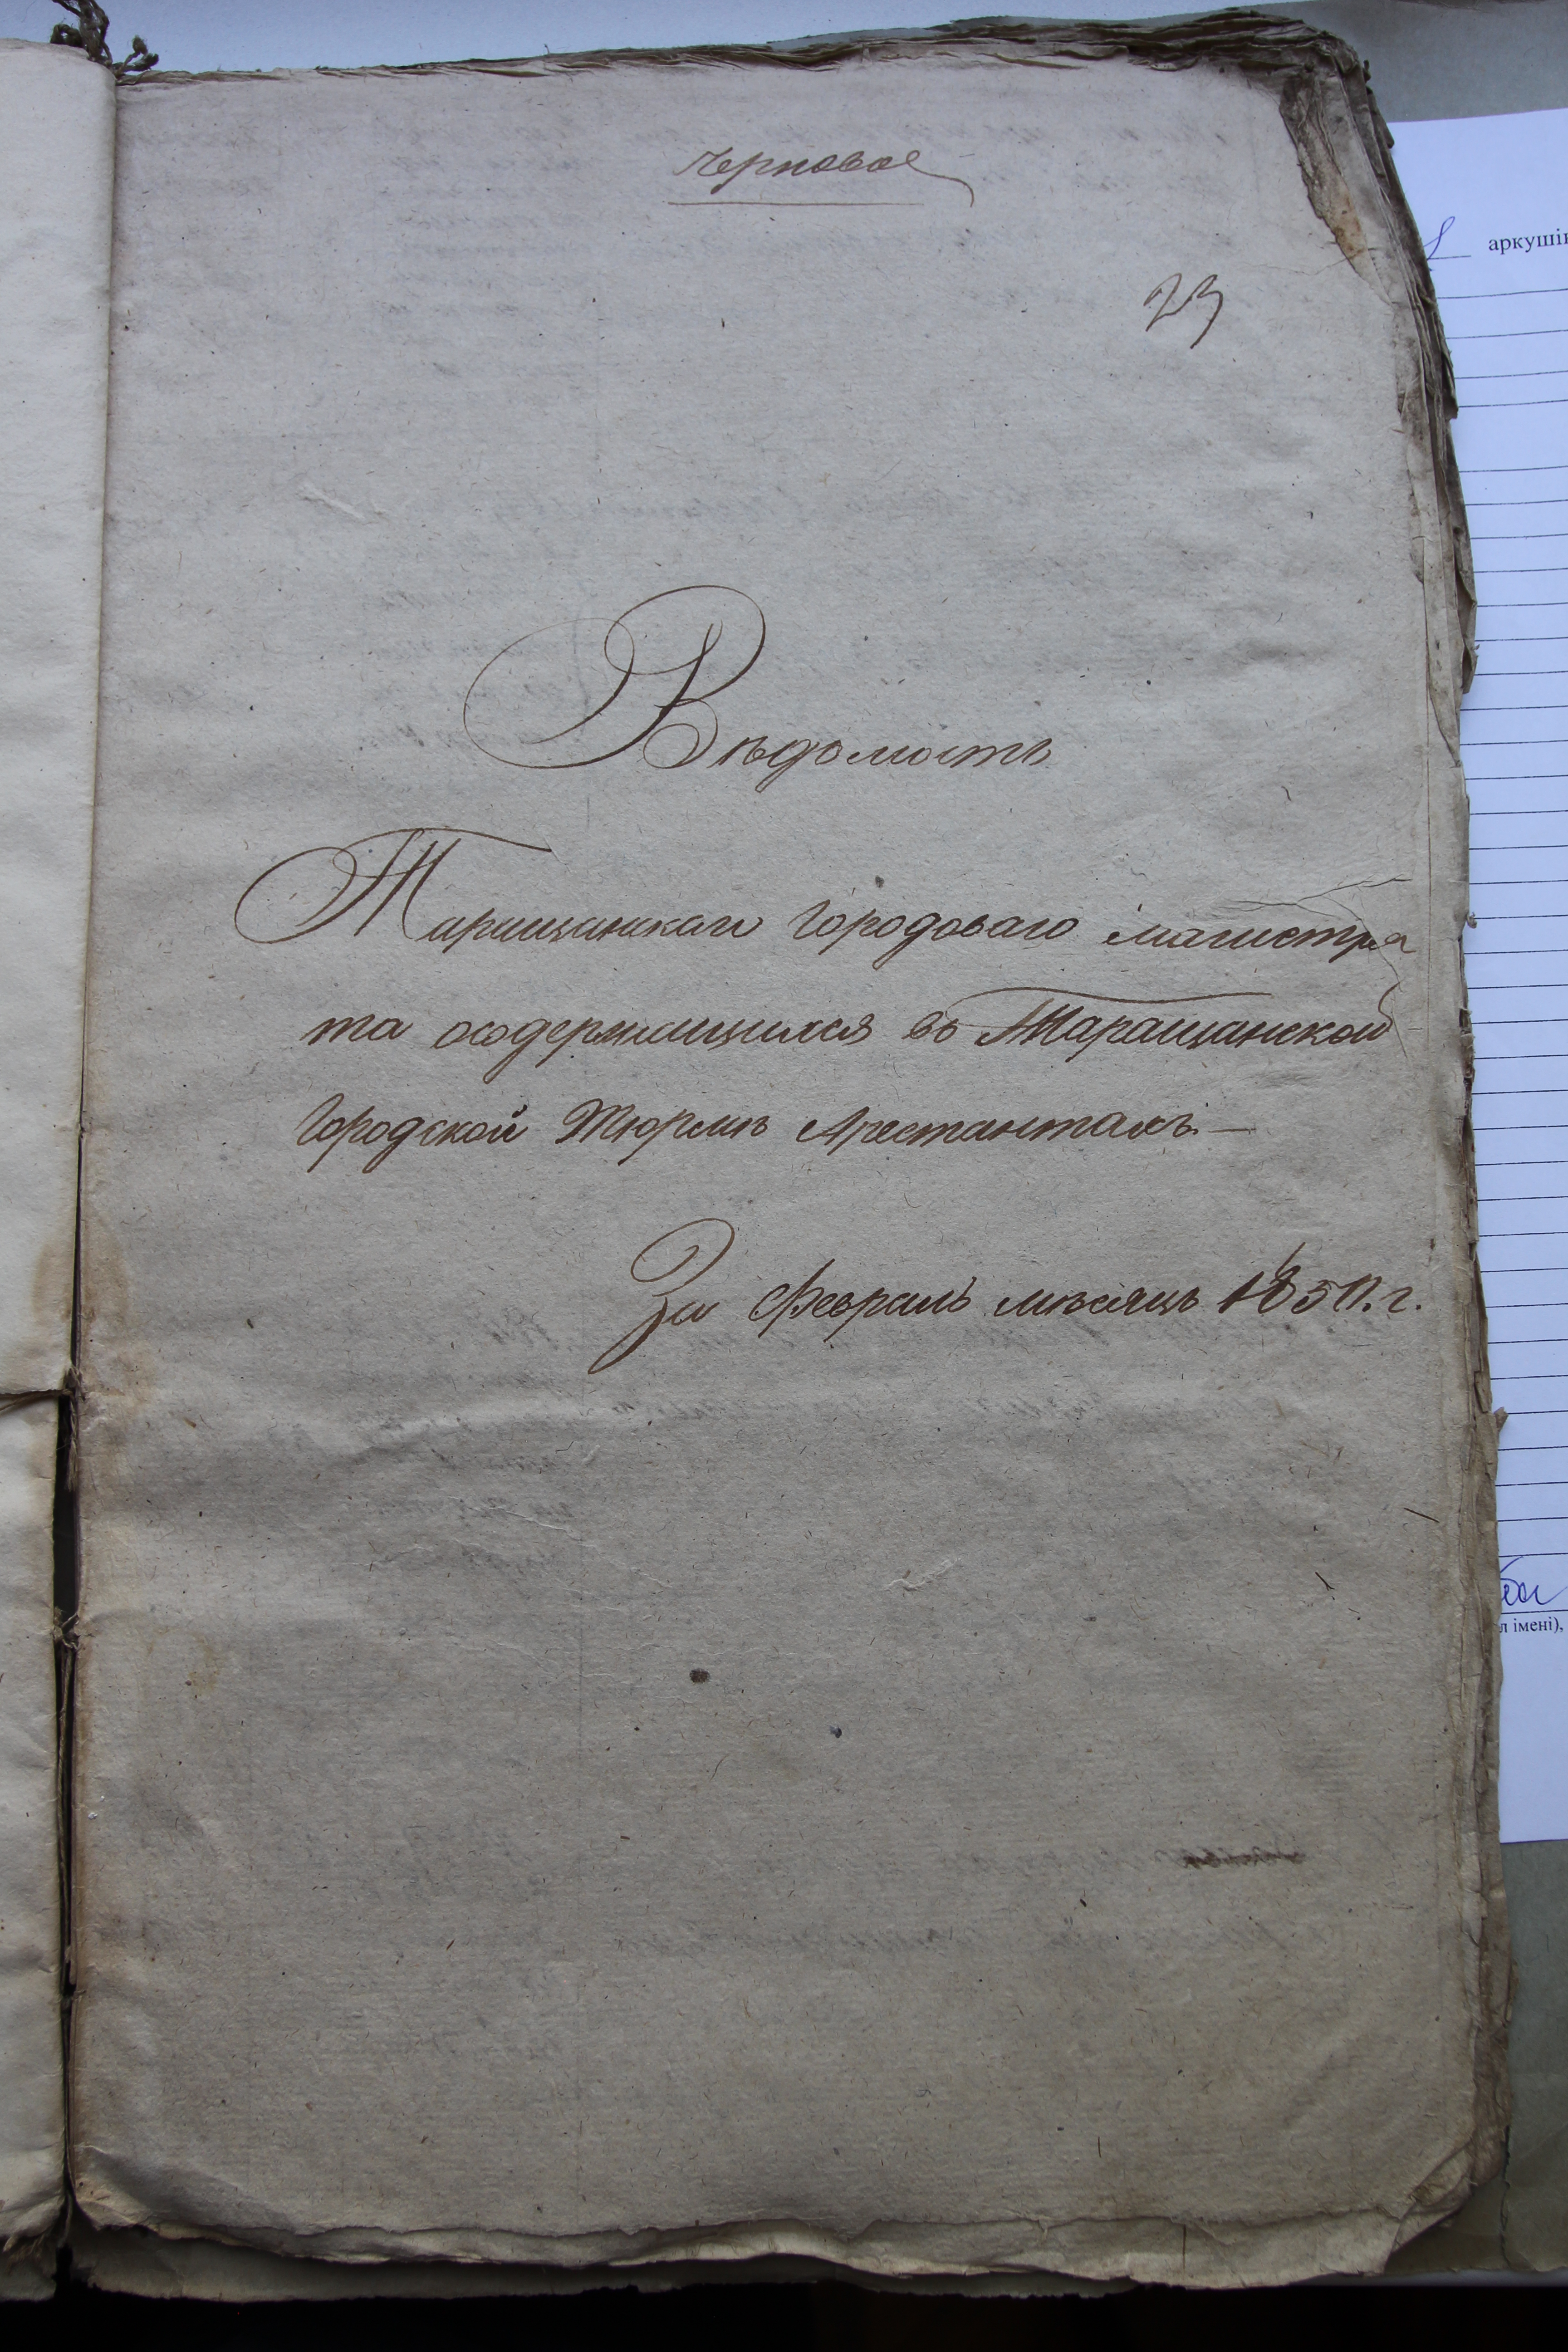 Черновое
23
Вѣдомость
Таращанскаго Городоваго магистра
та осодержащихся въ Таращанской
Городской Тюрмѣ Арестантахъ. —
За Февраль мѣсяцъ 1850. г.
аркушів
л імені),